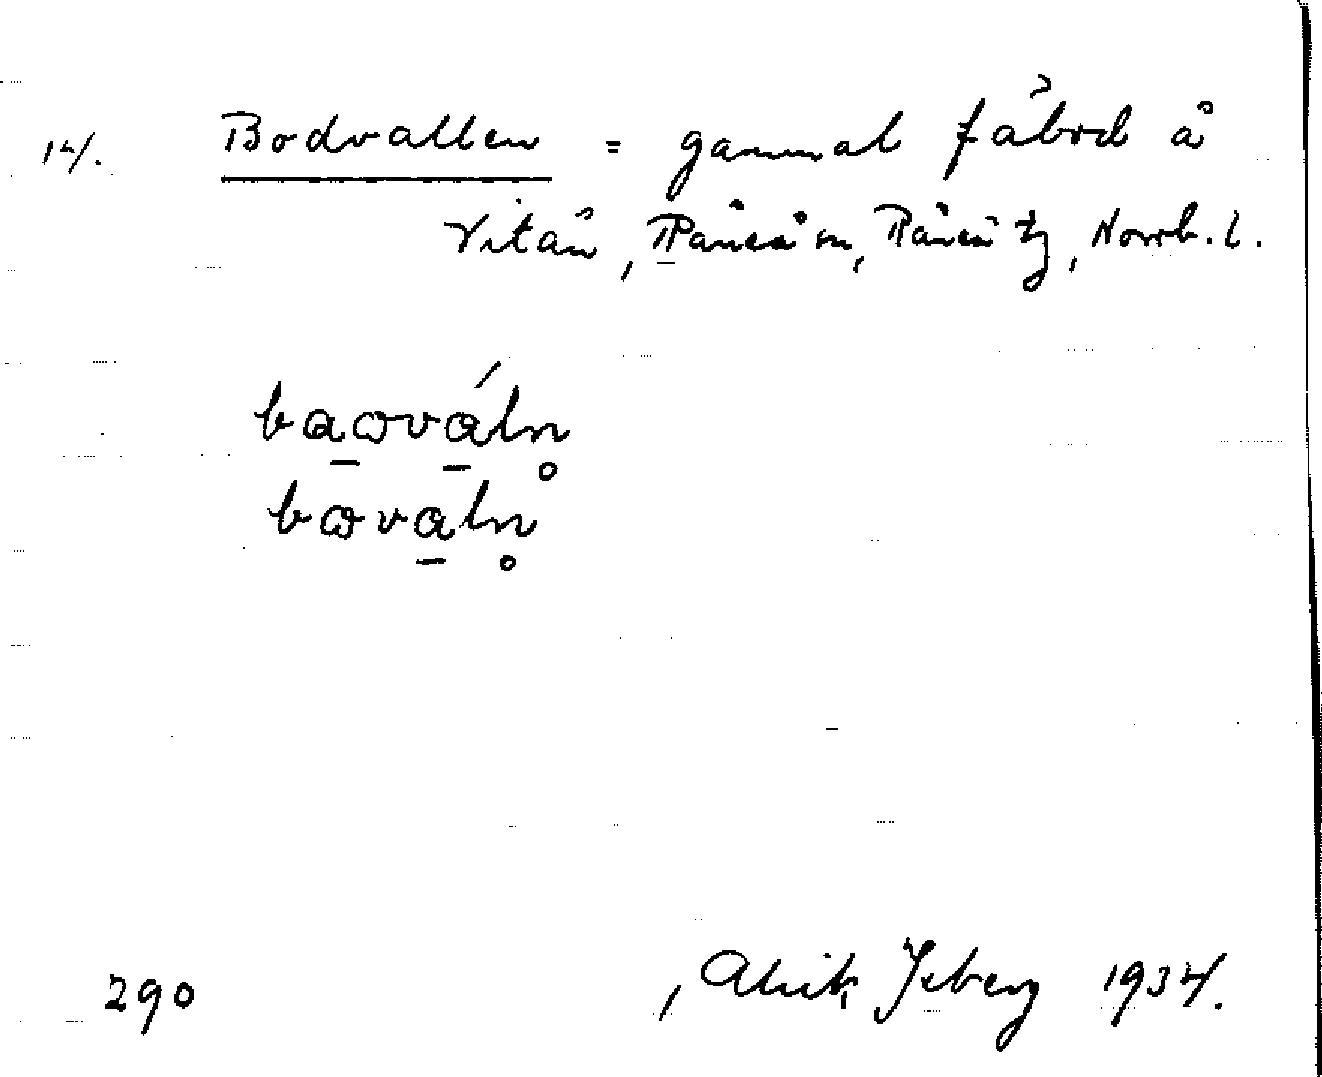 14/. Bodvallen = gammal fäbod å
Vitån, Råneå sn, Råneå tg, Norrb. l.
290
, Alrik Isberg 1934.